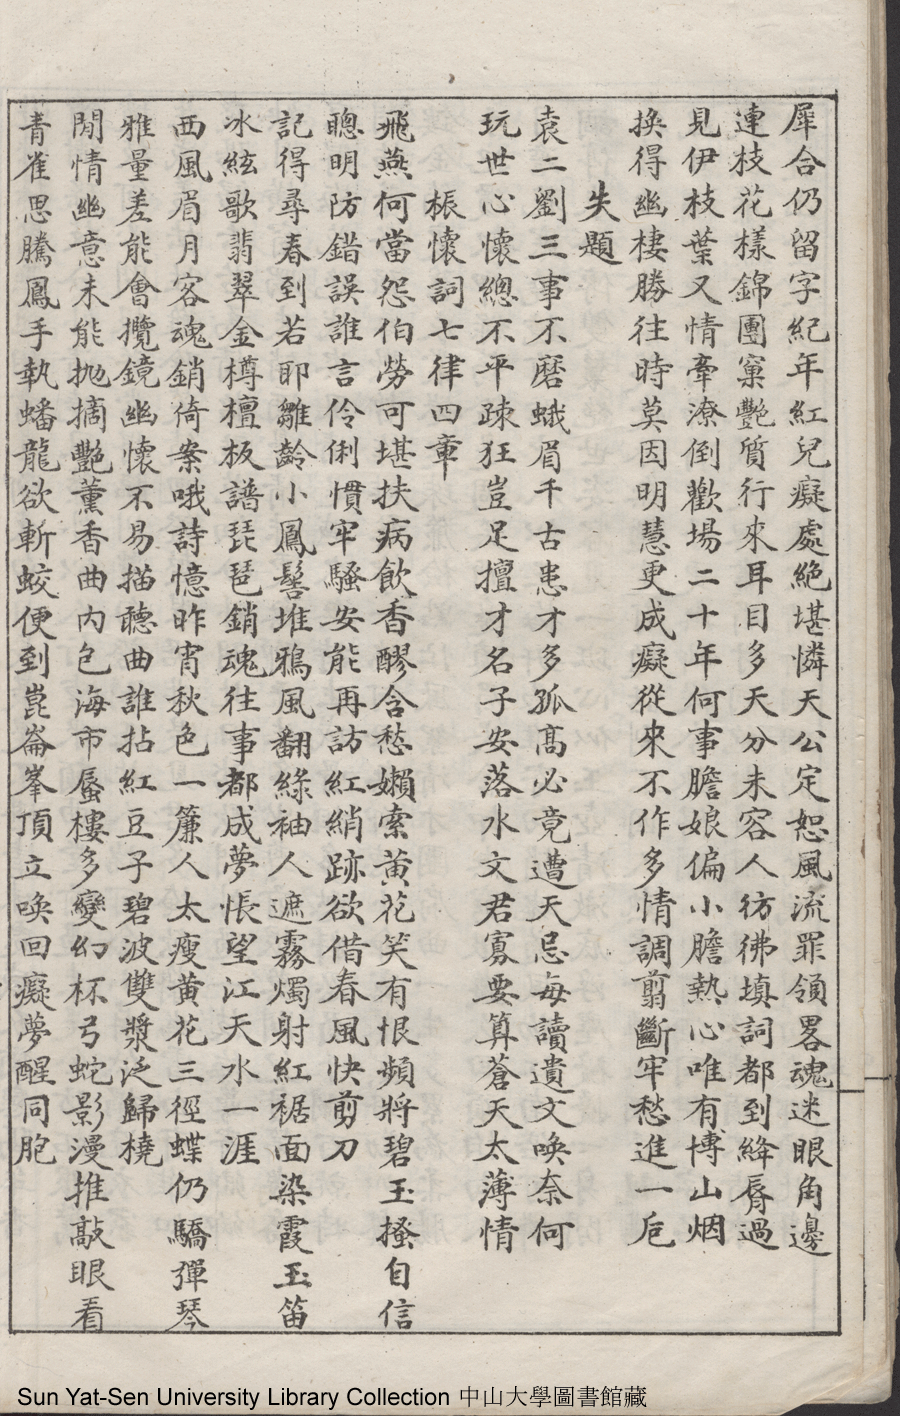 犀合仍留字紀年紅兒癡處絕堪憐天公定恕風流罪領畧魂迷眼角邊
連枝花樣錦團窠艷質行來耳目多天分未容人彷彿填詞都到絳脣過
見伊枝葉又情牽潦倒歡場二十年何事膽娘偏小膽熱心唯有博山烟
換得幽棲勝往時莫因明慧更成癡從來不作多情調剪斷牢愁進一卮
失題
袁二劉三事不磨蛾眉千古患才多孤高必竟遭天忌每讀遺文喚奈何
玩世心懷總不平踈狂豈足擅才名子安落水文君寡要算蒼天太薄情
棖懷詞七律四章
飛燕何當怨伯勞可堪扶病飲香醪含愁嬾索黃花笑有恨頻將碧玉搔自信
聰明防錯誤誰言伶俐慣牢騷安能再訪紅綃跡欲借春風快剪刀
記得尋春到若耶雛齡小鳳髻堆鴉風翻綠袖人遮霧燭射紅裾面染霞玉笛
冰絃歌翡翠金樽檀板譜琵琶銷魂往事都成夢悵望江天水一涯
西風眉月客魂銷倚案哦詩憶昨宵秋色一簾人太瘦黃花三徑蝶仍驕彈琴
雅量差能會攬鏡幽懷不易描聽曲誰拈紅豆子碧波雙槳泛歸橈
閒情幽意未能拋摘艷薰香曲內包海市蜃樓多變幻杯弓蛇影漫推敲眼看
青雀思騰鳳手執蟠龍欲斬蛟便到崑崙峯頂立喚回癡夢醒同胞
Sun Yat-Sen University Library Collection 中山大學圖書館藏